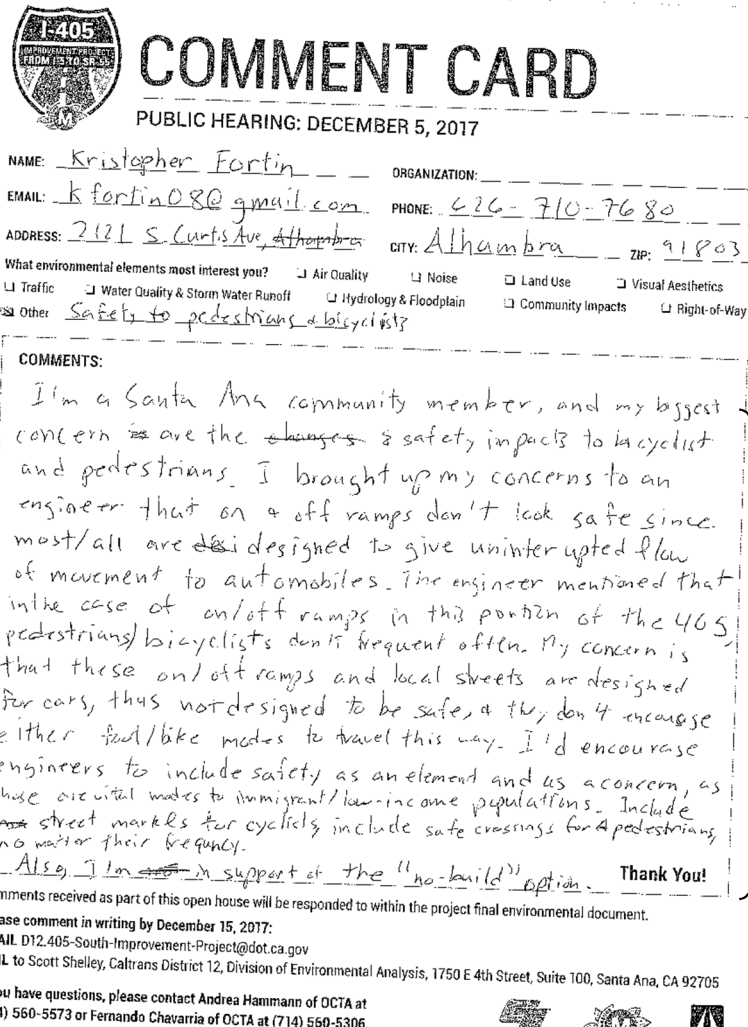 I-405
IMPROVEMENT PROJECT
FROM I-5 TO SR-55
M
COMMENT CARD
PUBLIC HEARING: DECEMBER 5, 2017
NAME: Kristopher Fortin ORGANIZATION:
EMAIL: kfortin08@gmail.com PHONE: 626-710-7680
ADDRESS: 2121 S. Curtis Ave, Alhambra CITY: Alhambra ZIP: 91803
What environmental elements most interest you? Air Quality Noise Land Use Visual Aesthetics
Traffic Water Quality & Storm Water Runoff Hydrology & Floodplain Community Impacts Right-of-Way
Other Safety to pedestrians & bicyclists
COMMENTS:
I'm a Santa Ana community member, and my biggest
concern is are the changes & safety impacts to bicyclist
and pedestrians. I brought up my concerns to an
engineer that on & off ramps don't look safe since
most/all are desi designed to give uninterupted flow
of movement to automobiles. The engineer mentioned that
in the case of on/off ramps in this portion of the 405,
pedestrians/bicyclists don't frequent often. My concern is
that these on/off ramps and local streets are designed
for cars, thus not designed to be safe, & they don't encourage
either foot/bike modes to travel this way. I'd encourage
engineers to include safety as an element and as a concern, as
those are vital modes to immigrant/low-income populations. Include
street markels for cyclists, include safe crossings for pedestrians,
no matter their frequncy.
Also, I'm in support of the "no-build" option. Thank You!
mments received as part of this open house will be responded to within the project final environmental document.
ase comment in writing by December 15, 2017:
AIL D12.405-South-Improvement-Project@dot.ca.gov
IL to Scott Shelley, Caltrans District 12, Division of Environmental Analysis, 1750 E 4th Street, Suite 100, Santa Ana, CA 92705
ou have questions, please contact Andrea Hammann of OCTA at
4) 560-5573 or Fernando Chavarria of OCTA at (714) 560-5306.